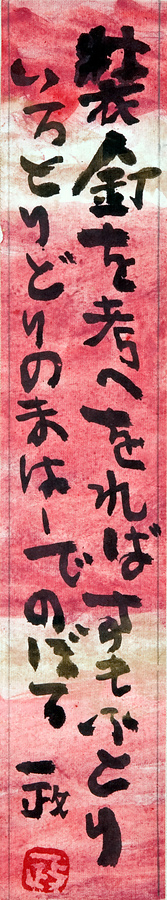 装釘を考へをればすもふとり
いろとりどりのまはしでのぼる 一政